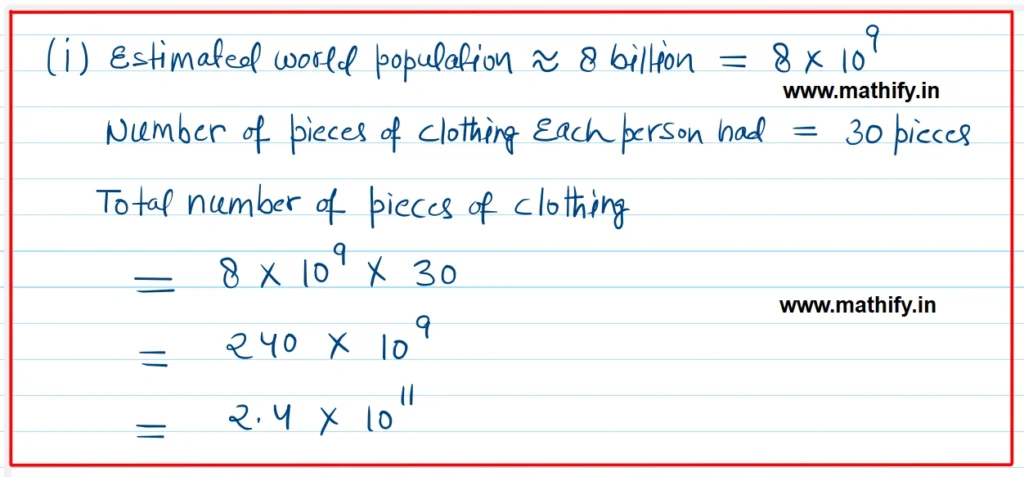 (i) Estimated world population ≈ 8 billion = 8 × 10⁹
www.mathify.in
Number of pieces of clothing Each person had = 30 pieces
Total number of pieces of clothing
= 8 × 10⁹ × 30
www.mathify.in
= 240 × 10⁹
= 2.4 × 10¹¹